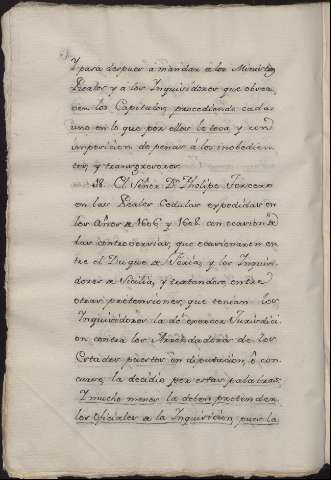 Y para despues a mandar a los Ministros
Reales y a los Inquisidores que obser
ven los Capitulos, procediendo cada
uno en lo que por ellos le toca, y con
imposicion de penas a los inobedien
tes, y transgresores.
38. El Señor Dn. Phelipe Tercero
en las Reales Cedulas expedidas en
los Años de 1606 y 1608 con ocasion de
las controversias, que ocasionaron en
tre el Duque de Feria, y los Inquisi
dores de Sicilia, y tratandose entre
otras pretensiones, que tenian los
Inquisidores la de exercer Jurisdici
on contra los Arrendadores de los
Estados puestos en diputacion, ò con
curso, la decidio por estas palabras:
Y mucho menos la deben pretender
los Oficiales de la Inquisicion pues la